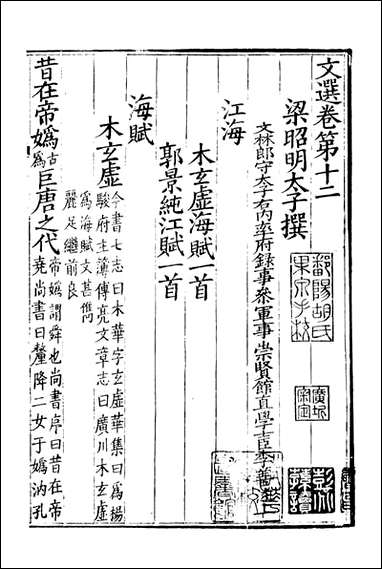 文選卷第十二
梁昭明太子撰
鄱陽胡氏
果泉手校
文林郎守太子右內率府錄事參軍事崇賢館直學士臣李善
江海
木玄虛海賦一首
郭景純江賦一首
海賦
木玄虛
今書七志曰木華字玄虛華集曰爲楊
駿府主簿傅亮文章志曰廣川木玄虛
爲海賦文甚儁
麗足繼前良
昔在帝嬀古爲巨唐之代
帝嬀謂舜也尚書序曰昔在帝
堯尚書曰釐降二女于嬀汭孔